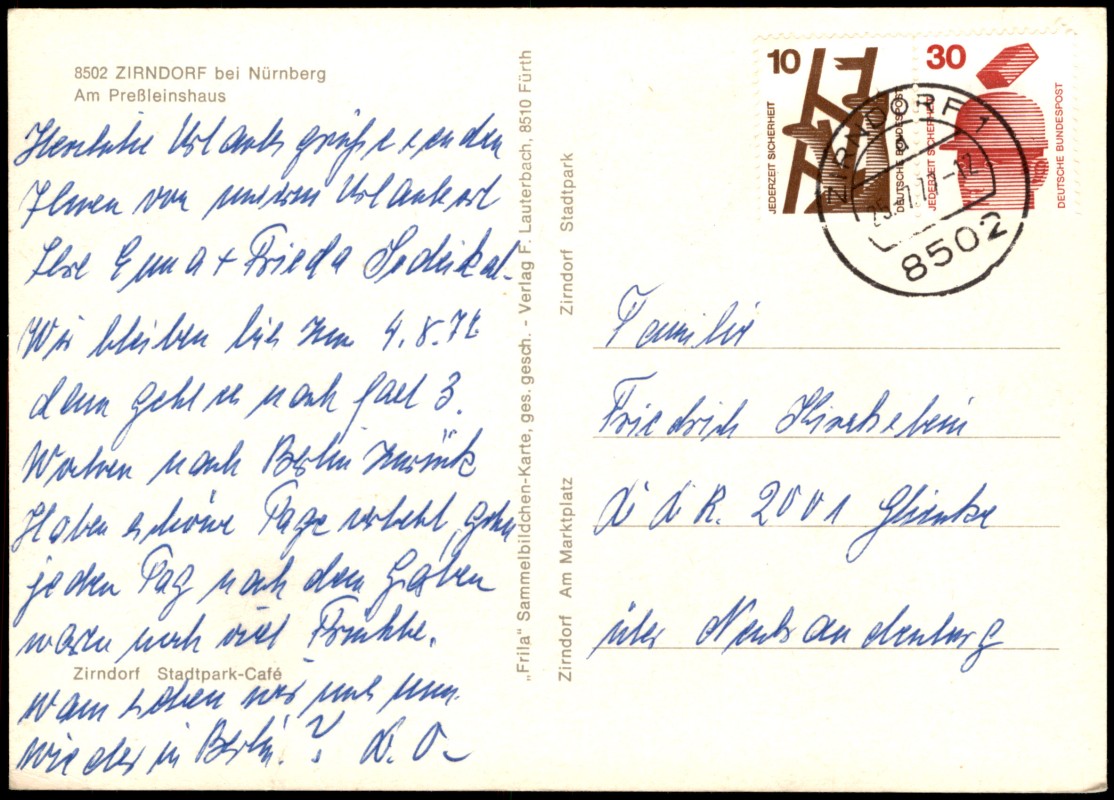 8502 ZIRNDORF bei Nürnberg
Am Preßleinshaus
Herzliche Urlaubsgrüße senden
Ihnen von unserem Urlaubsort
Ihre Erna + Frieda
Wir bleiben bis zum 4.8.
dann geht es nach fast 3.
Wochen nach Berlin zurück
Haben schöne Tage verlebt, gehn
jeden Tag nach dem Garten
waren noch viel
Zirndorf Stadtpark-Café
wann sehen wir uns nun
wieder in Berlin.? D. O-
„Frila" Sammelbildchen-Karte, ges. gesch. - Verlag F. Lauterbach, 8510 Fürth
Zirndorf Am Marktplatz
Zirndorf Stadtpark
10
JEDERZEIT SICHERHEIT
DEUTSCHE BUNDESPOST
30
JEDERZEIT SICHERHEIT
DEUTSCHE BUNDESPOST
ZIRNDORF 1
8502
Familie
Friedrich
DDR. 2001 Glienke
über Neubrandenburg